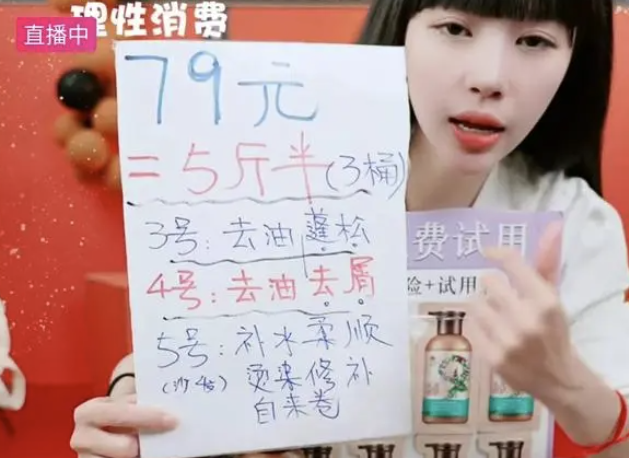 理性消费
直播中
79元
=5斤半(3桶)
3号:去油蓬松
4号:去油去屑
5号:补水柔顺
烫染修补
自来卷
费试用
险+试用